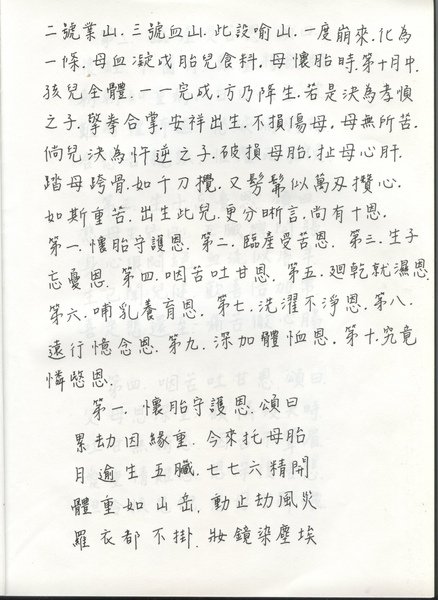 二號業山．三號血山．此設喻山．一度崩來．化為
一條．母血凝成胎兒食料．母懷胎時．第十月中．
孩兒全體．一一完成．方乃降生．若是決為孝順
之子．擎拳合掌．安祥出生．不損傷母．母無所苦．
倘兒決為忤逆之子．破損母胎．扯母心肝．
踏母跨骨．如千刀攪．又髣髴似萬刃攢心．
如斯重苦．出生此兒．更分晰言．尚有十恩．
第一．懷胎守護恩．第二．臨產受苦恩．第三．生子
忘憂恩．第四．咽苦吐甘恩．第五．廻乾就濕恩．
第六．哺乳養育恩．第七．洗濯不淨恩．第八．
遠行憶念恩．第九．深加體恤恩．第十．究竟
憐愍恩．
第一．懷胎守護恩．頌曰
累劫因緣重．今來托母胎
月逾生五臟．七七六精開
體重如山岳．動止劫風災
羅衣都不掛．妝鏡染塵埃